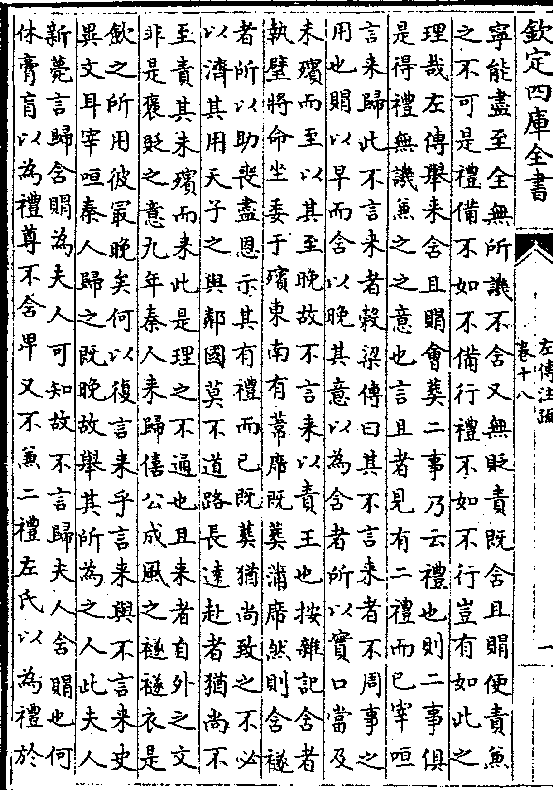 欽定四庫全書
左傳注疏
卷十八
一
寧能盡至全無所譏不含又無貶責既含且賵便責兼
之不可是禮備不如不備行禮不如不行豈有如此之
理哉左傳舉来含且賵會葬二事乃云禮也則二事俱
是得禮無譏兼之之意也言且者見有二禮而已宰咺
言来歸此不言来者穀梁傳曰其不言来者不周事之
用也賵以早而含以晚其意以為含者所以實口當及
未殯而至以其至晚故不言来以責王也按雜記含者
執璧將命坐委于殯東南有葦席既葬蒲席然則含襚
者所以助喪盡恩示其有禮而已既葬猶尚致之不必
以濟其用天子之與鄰國莫不道路長遠赴者猶尚不
至責其未殯而来此是理之不通也且来者自外之文
非是襃貶之意九年秦人来歸僖公成風之襚襚衣是
斂之所用彼最晚矣何以復言来乎言来與不言来史
異文耳宰咺秦人歸之既晚故舉其所為之人此夫人
新薨言歸含賵為夫人可知故不言歸夫人含賵也何
休膏肓以為禮尊不含卑又不兼二禮左氏以為禮於